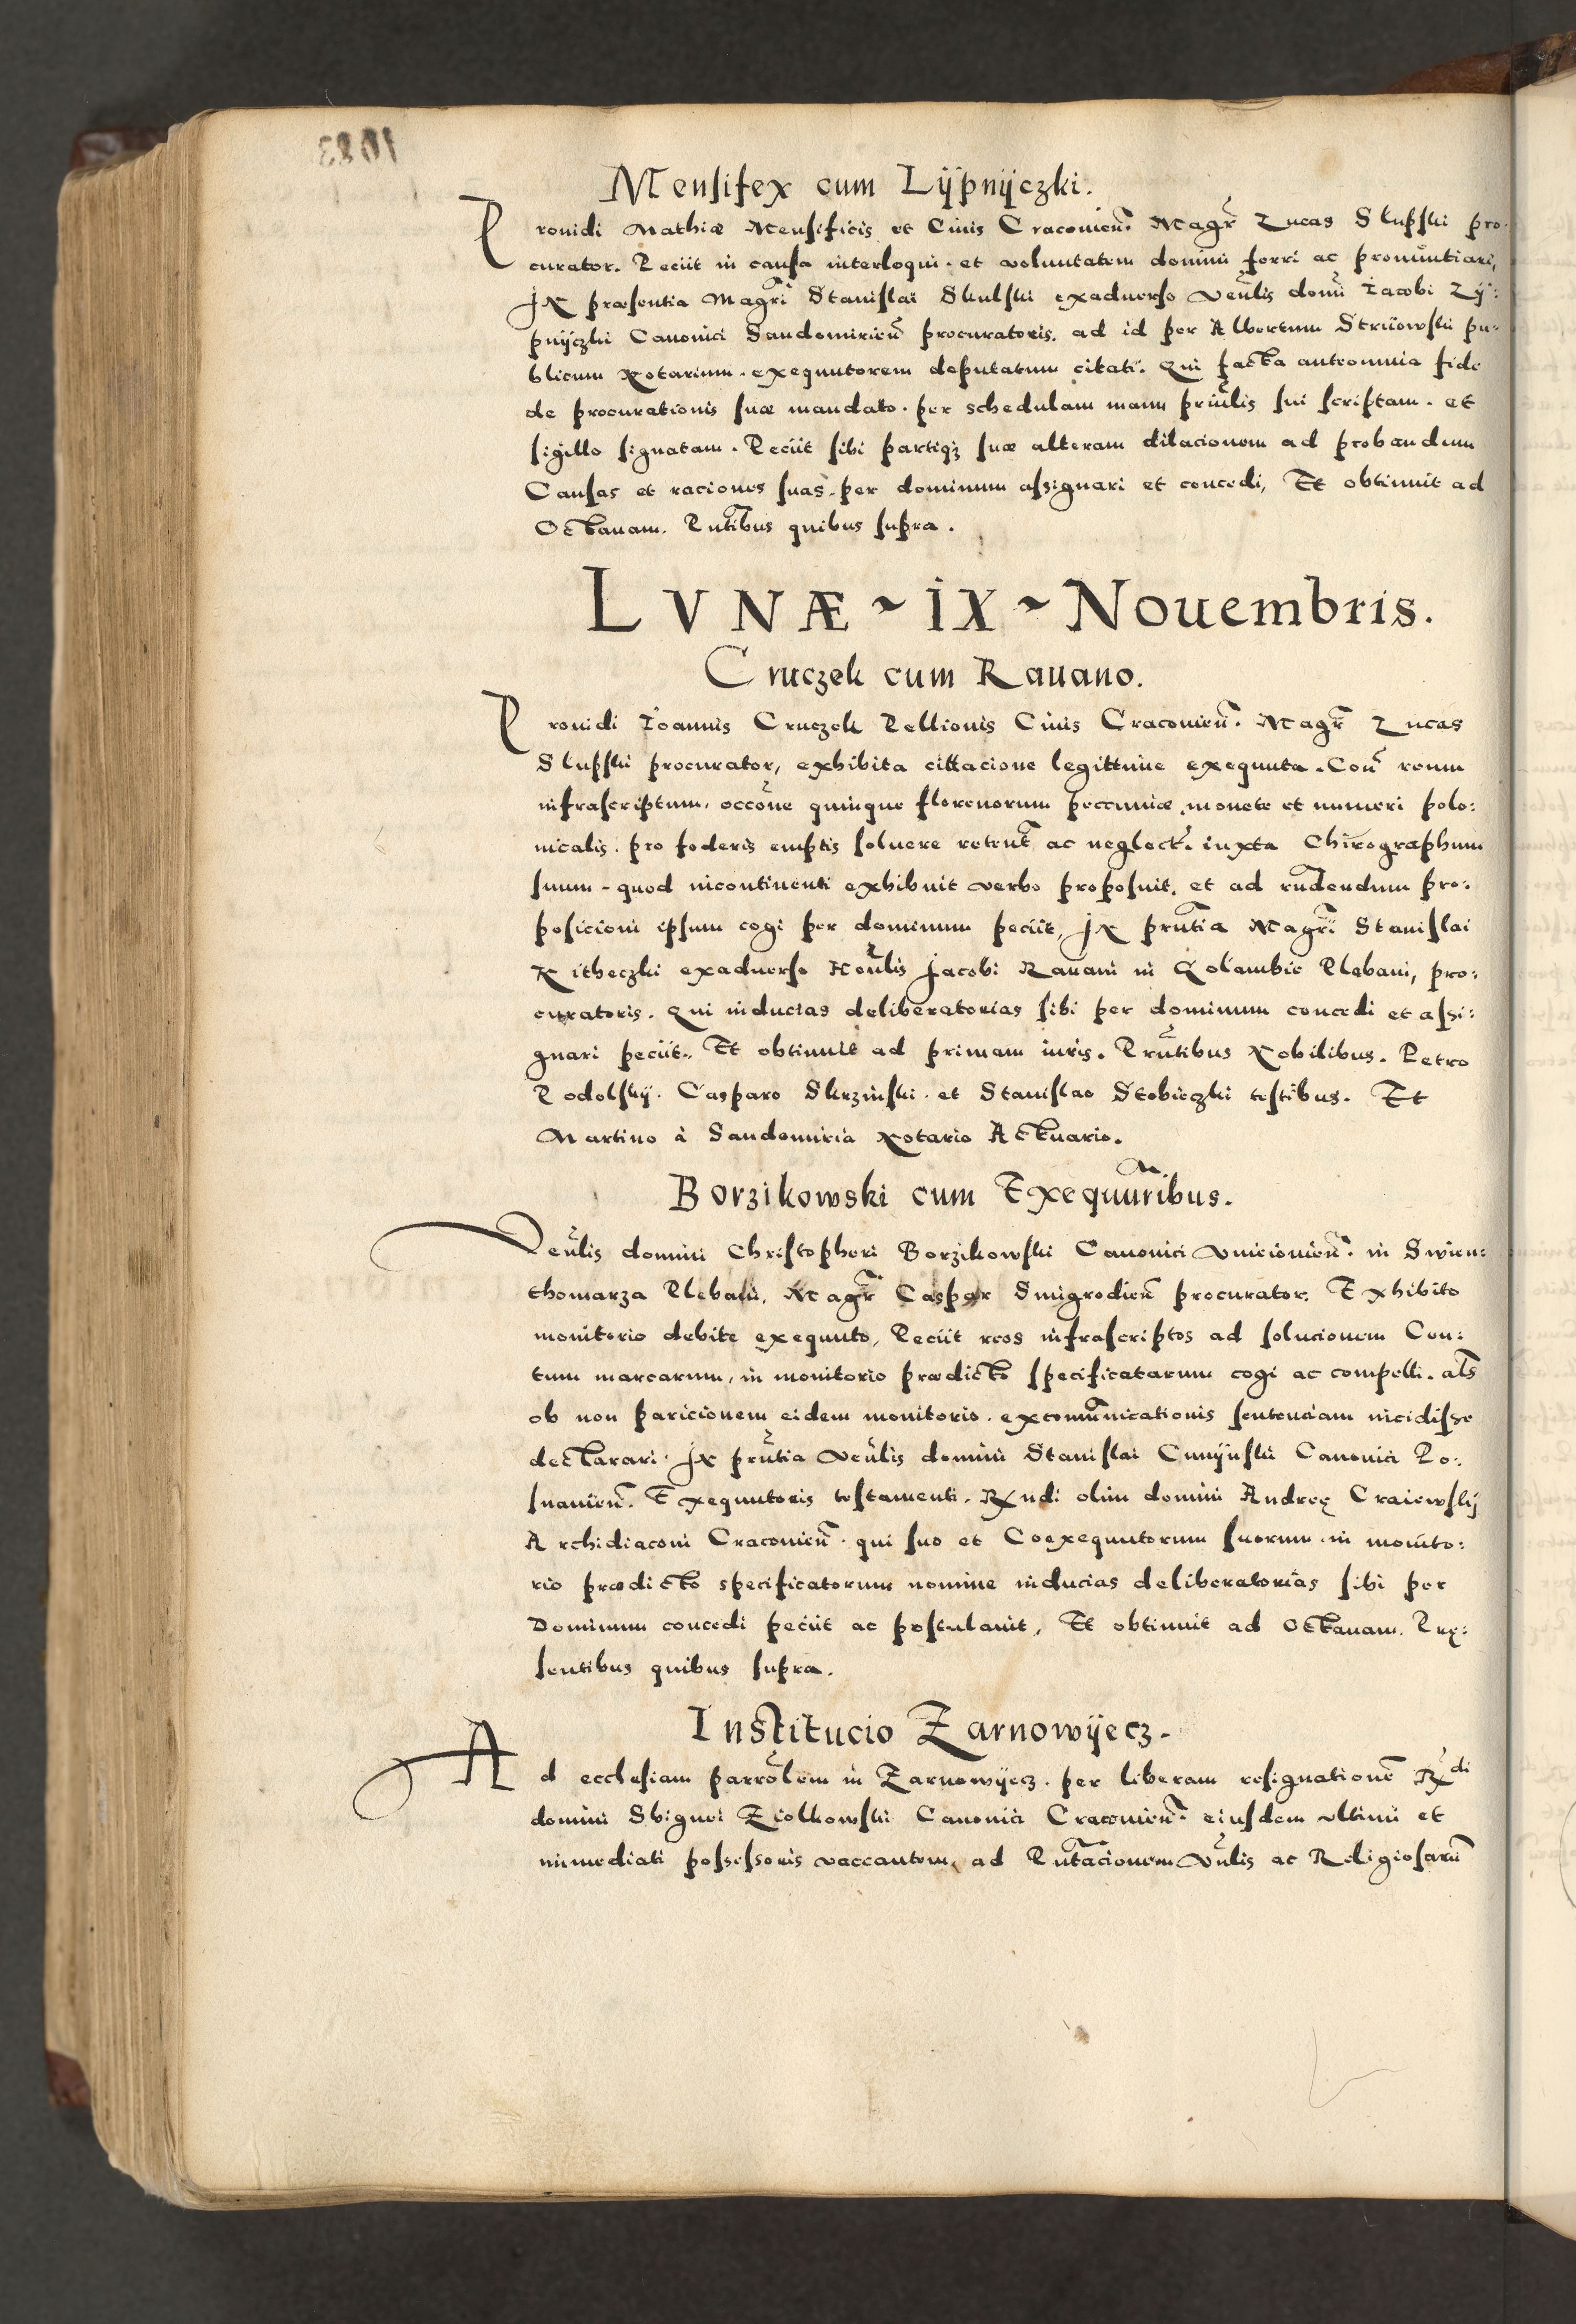 Mensifex cum Lÿpnÿczki.
Prouidi Mathiæ Mensificis et Ciuis Craconieñ. Magr̃ Lucas Slupski pro-
curator. Peciit in causa interloqui. et voluntatem domini ferri ac pronuntiari,
IN præsentia Magr̃i Stanislai Skulski exaduerso Veñlis domi Jacobi Lÿ:
pnÿczki Canonici Sandomirieñ procuratoris. ad id per Albertum Struowski pu-
blicum Notarium. exequutorem deputatum citati. Qui facta anteomnia fide
de procurationis suæ mandato. per schedulam manu priñlis sui scriptam. et
sigillo signatam. Peciit sibi partiqȝ suæ alteram dilacionem ad probandum
Causas et raciones suas. per dominum assignari et concedi, Et obtinuit ad
Octauam. Pñtibus quibus supra.
LVNÆ ~ IX ~ Nouembris.
Cruczek cum Rauano.
Prouidi Ioannis Cruczek Pellionis Ciuis Cracouieñ. Magr̃ Lucas
Slupski procurator, exhibita cittacione legittime exequuta. Coñ reum
infrascriptum, occõne quinque florenorum peccuniæ monete et numeri polo:
nicalis. pro foderis emptis soluere retent̃ ac neglect̃. iuxta Chirographum
suum - quod incontinenti exhibuit verbo proposuit. et ad rñdendum pro:
posicioni ipsum cogi per dominum peciit, IN prñtia Magr̃i Stanislai
Kitheczki exaduerso Hoñlis Jacobi Rauani in Golambie Plebani, pro:
curatoris. Qui inducias deliberatorias sibi per dominum concedi et assi:
gnari peciit. Et obtinuit ad primam iuris. Prñtibus Nobilibus. Petro
Podolskÿ. Casparo Skrzinski. et Stanislao Stobieczki testibus. Et
Martino à Sandomiria Notario Actuario.
Borzikowski cum Exequuũribus.
Veñlis domini Christopheri Borzikowski Canonici Vnieiouieñ. in Swien:
thomarza Plebani, Magr̃ Caspar Smigrodieñ procurator. Exhibito
monitorio debite exequuto, Peciit reos infrascriptos ad solucionem Cen:
tum marcarum, in monitorio prædicto specificatarum cogi ac compelli. als̃
ob non paricionem eidem monitorio. excomũnicationis sentenciam incidisse
declarari. IN prñtia Veñlis domini Stanislai Cunÿnski Canonici Po:
snanieñ. Exequutoris testamenti. Rñdi olim domini Andreę Craiewskÿ
Archidiaconi Cracouieñ. qui suo et Coexequutorum suorum in monito:
rio prædicto specificatorum nomine inducias deliberatorias sibi per
Dominum concedi peciit ac postulauit, Et obtinuit ad Octauam. Prę:
sentibus quibus supra.
Institucio Zarnowÿecz.
Ad ecclesiam parrõlem in Zarnowÿecz. per liberam resignationẽ Rñdi
domini Sbignei Ziolkowski Canonici Cracouieñ. eiusdem vltimi et
immediati possessoris vaccantem, ad Pñtacionem Vñlis ac Religiosarũ